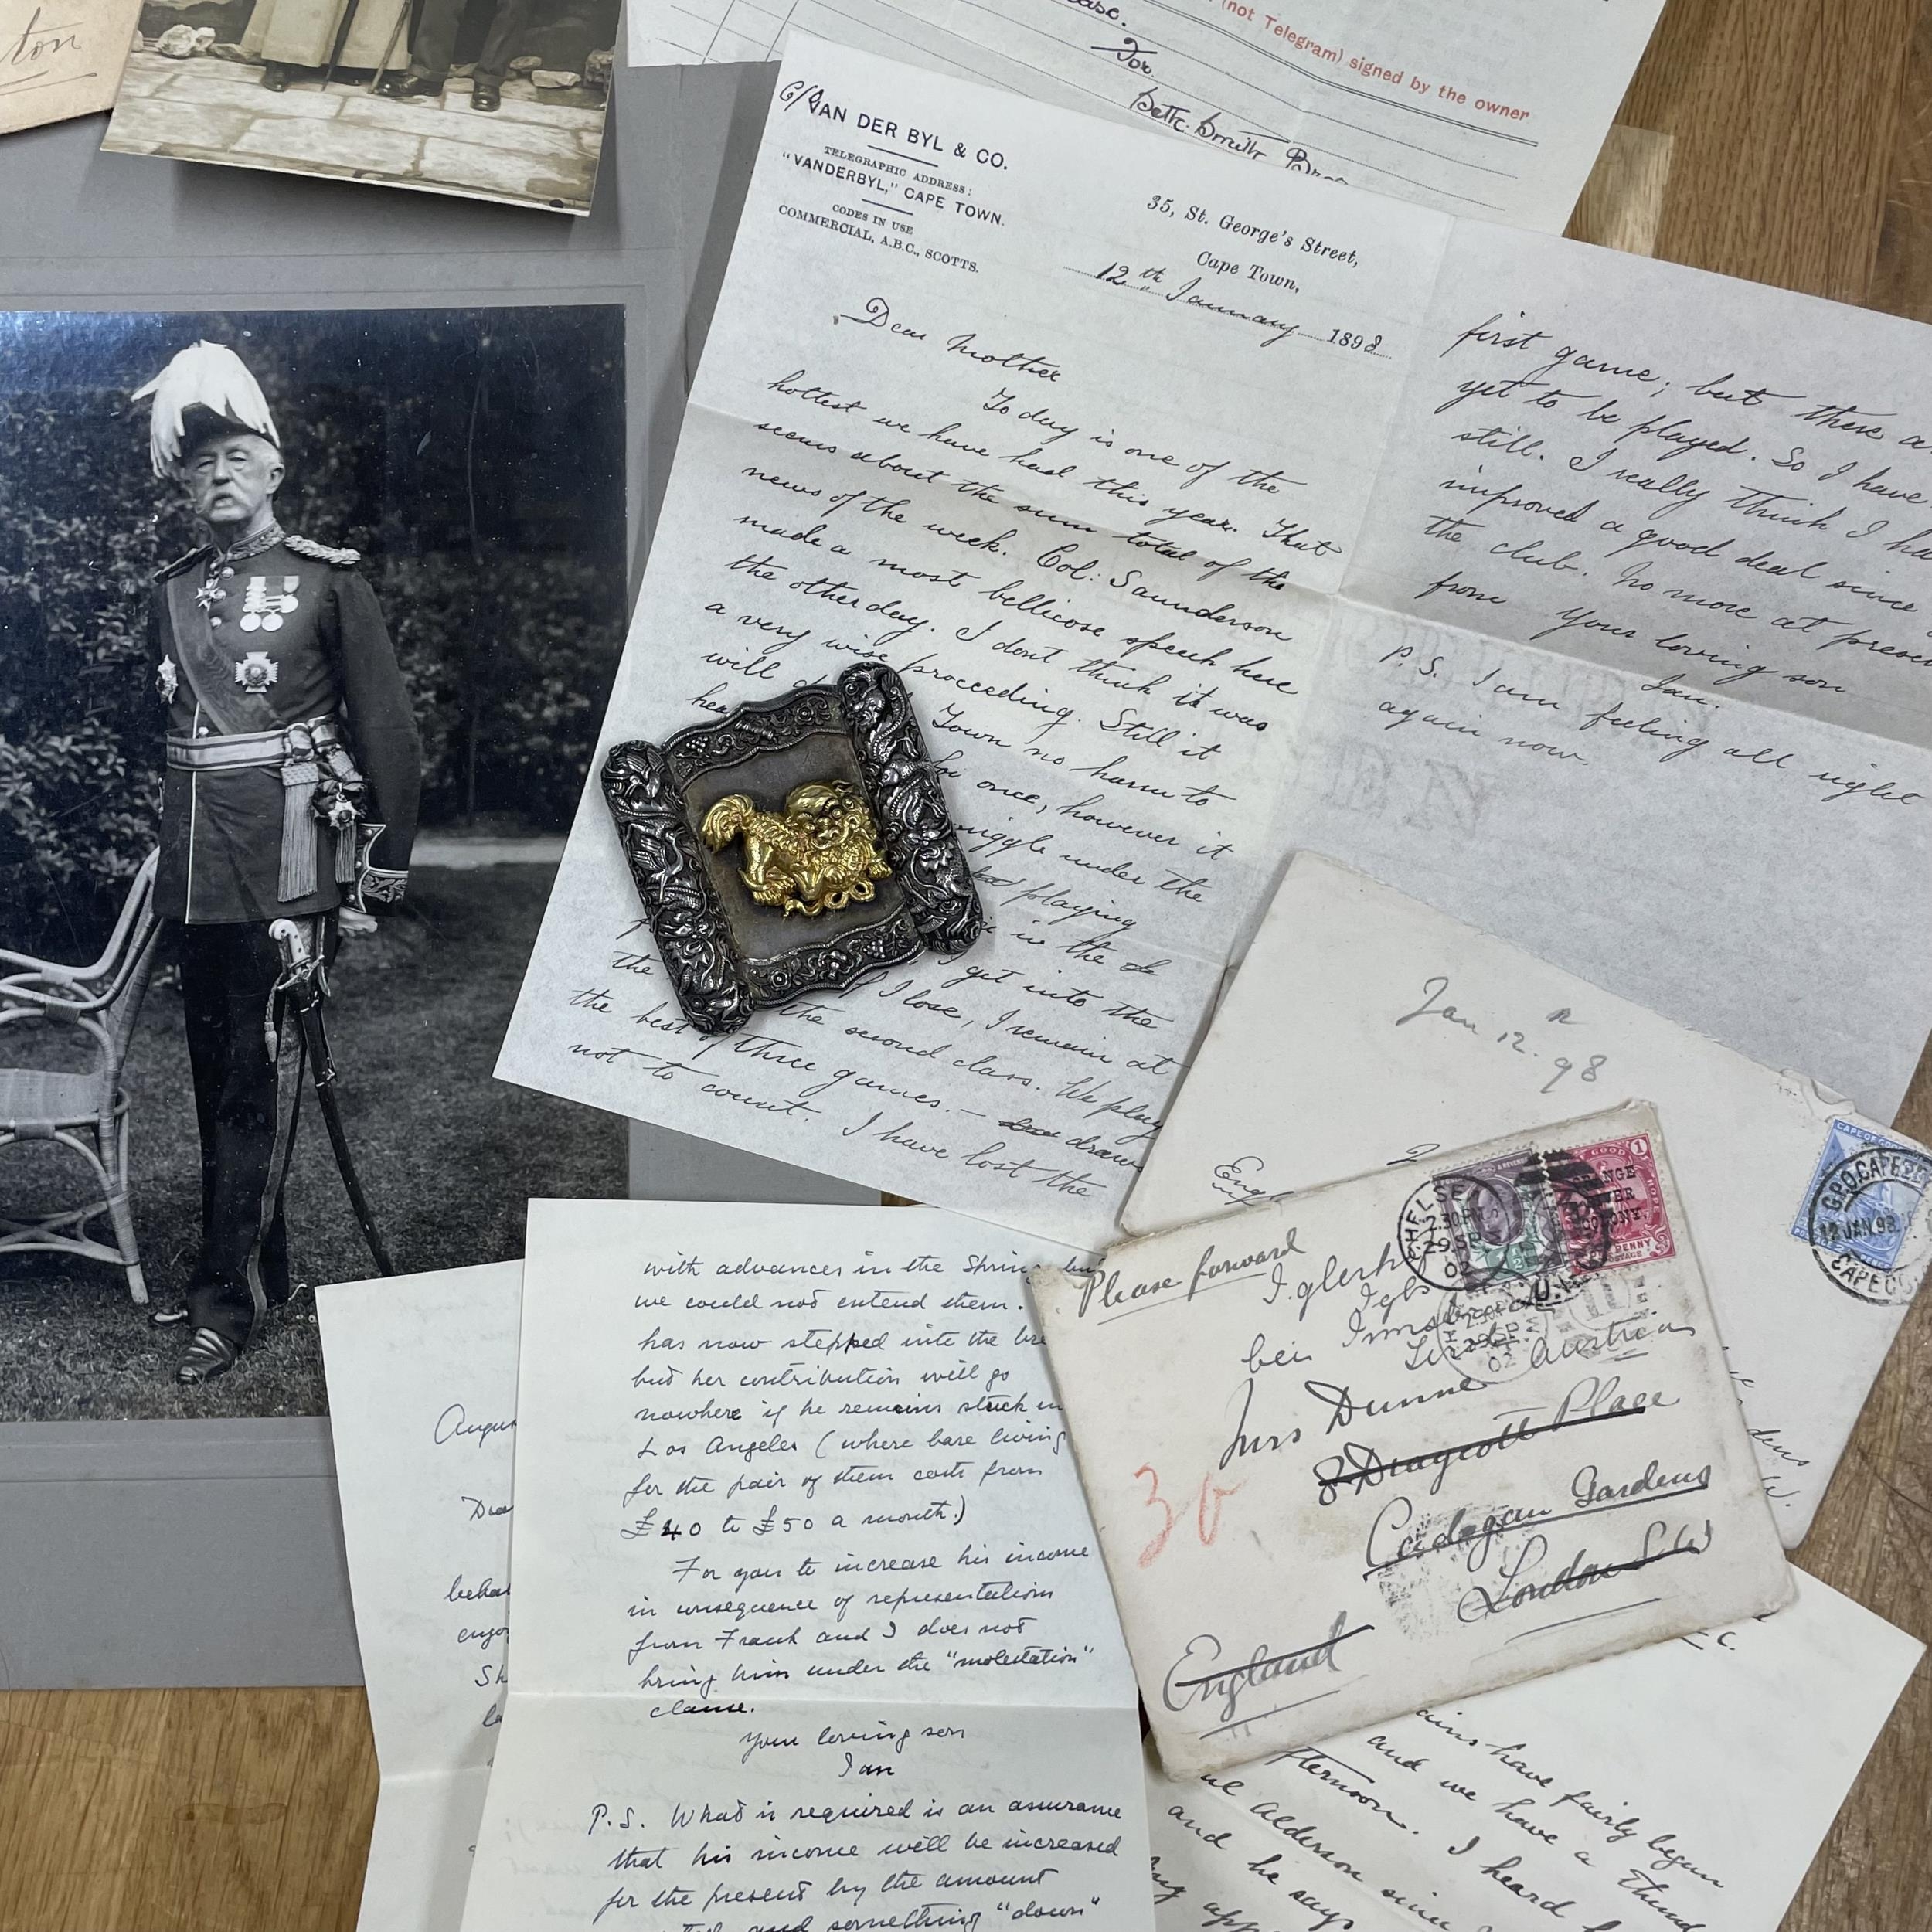 ton
ase.
(not Telegram) signed by the owner
For
VAN DER BYL & CO.
TELEGRAPHIC ADDRESS:
"VANDERBYL," CAPE TOWN.
CODES IN USE
COMMERCIAL, A.B.C., SCOTTS.
35, St. George's Street,
Cape Town,
12th January 1898
Dear Mother
To day is one of the
hottest we have had this year. That
seems about the sum total of the
news of the week. Col: Saunderson
made a most bellicose speech here
the other day. I dont think it was
a very wise proceeding. Still it
will Town no harm to
hea for once, however it
wriggle under the
playing
in the
get into the
the if I lose, I remain at
the second class. We play
the best of three games. — draws
not to count. I have lost the
first game; but there a
yet to be played. So I have
still. I really think I ha
improved a good deal since
the club. No more at presen
from your loving son
Ian.
P.S. I am feeling all right
again now.
Jan 12. 98
Engl
CAPE OF GOO
G.P.O. CAPE
12 JAN. 98
CAPE CO
Please forward
Iglerhof
Igls
bei Innsbruck
Austria
Mrs Dunne
8 Draycott Place
Cadogan Gardens
London S.W
England
30
CHELSE
2.30PM
29 SP
02
GOOD HOPE
1
ORANGE
RIVER
COLONY.
PENNY
POSTAGE
dens
W.
Augus
Dea
behal
enjo
Sh
la
with advances in the Spring but
we could not extend them.
has now stepped into the bre
but her contribution will go
nowhere if he remains stuck in
Los Angeles (where bare living
for the pair of them costs from
£40 to £50 a month.)
For you to increase his income
in consequence of representations
from Frank and I does not
bring him under the "molestation"
clause.
Your loving son
Ian
P.S. What is required is an assurance
that his income will be increased
for the present by the amount
and something "down"
C.
ains have fairly begun
and we have a thund
fternoon. I heard f
Alderson since
and he says
app